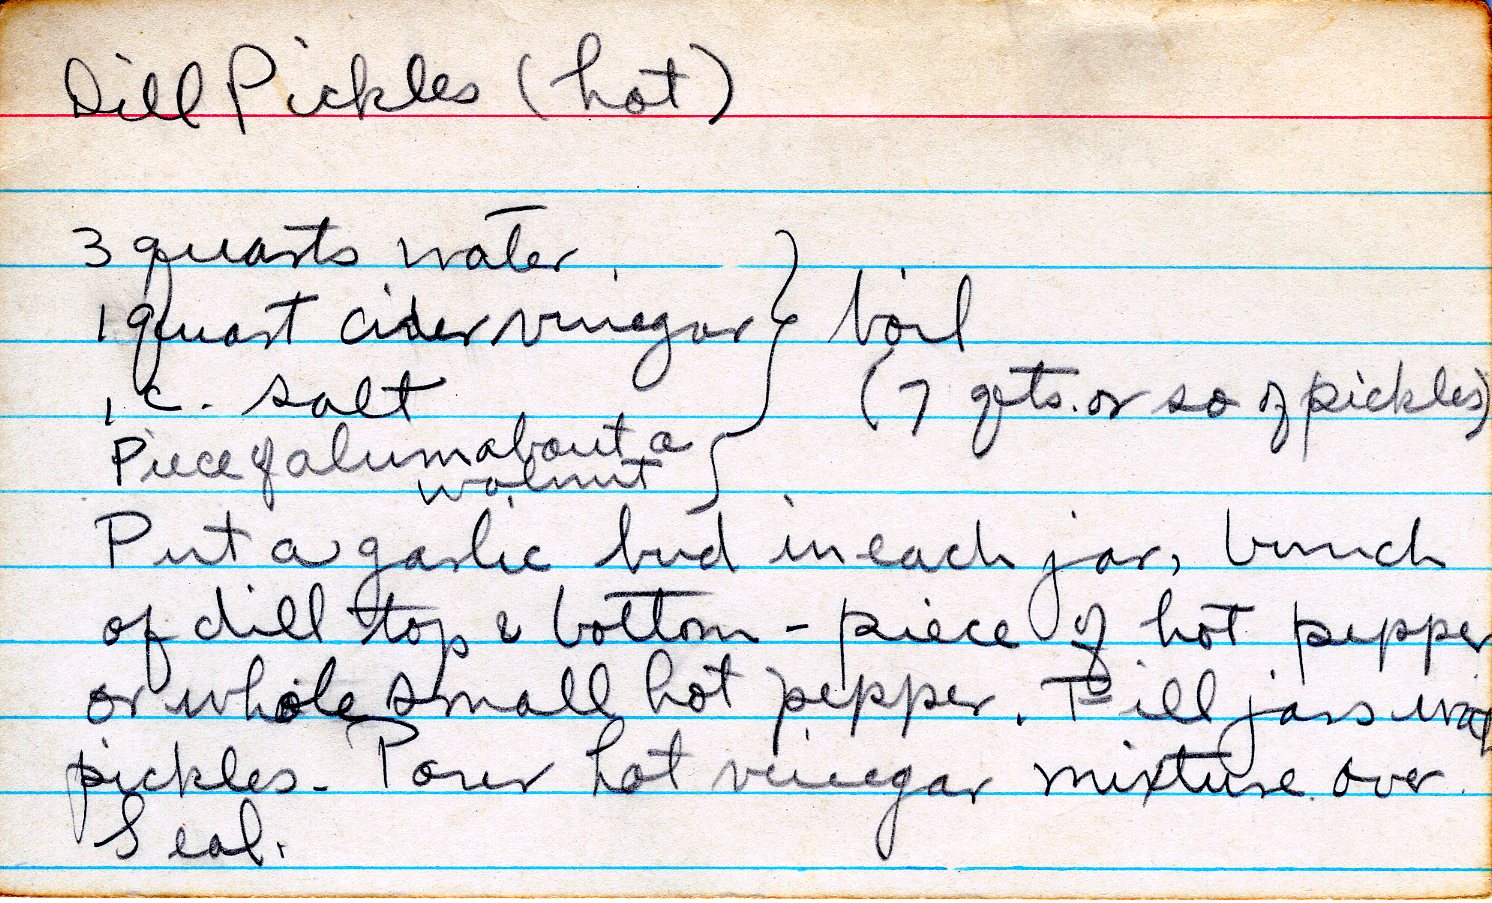 Dill Pickles (hot)
3 quarts water
1 quart cider vinegar } boil
1 c. salt (7 qts. or so of pickles)
Piece of alum about a
walnut
Put a garlic bud in each jar, bunch
of dill top & bottom - piece of hot pepper
or whole small hot pepper. Fill jars with
pickles - Pour hot vinegar mixture over
Seal.